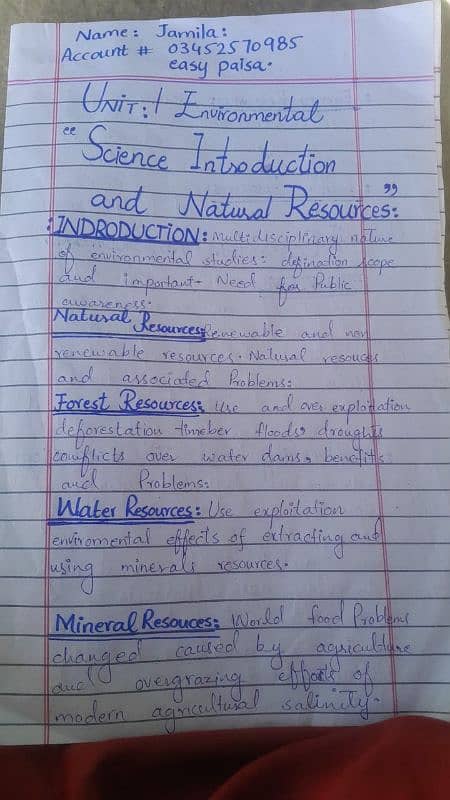 Name: Jamila:
Account # 03452570985
easy paisa.
UNIT:1 Environmental
"Science Introduction
and Natural Resources":
:INDRODUCTION: Multidisciplinary nature
of environmental studies: defination scope
and important- Need for Public
awareness.
Natural Resources: Renewable and non
renewable resources. Natural resouces
and associated Problems:
Forest Resources: Use and over exploitation
deforestation timeber floods, droughts
conflicts over water dams, benefits
and Problems:
Water Resources: Use exploitation
enviromental effects of extracting and
using minerals resources.
Mineral Resouces: World food Problems
changed caused by agriculture
and overgrazing effects of
modern agricultural salinity.